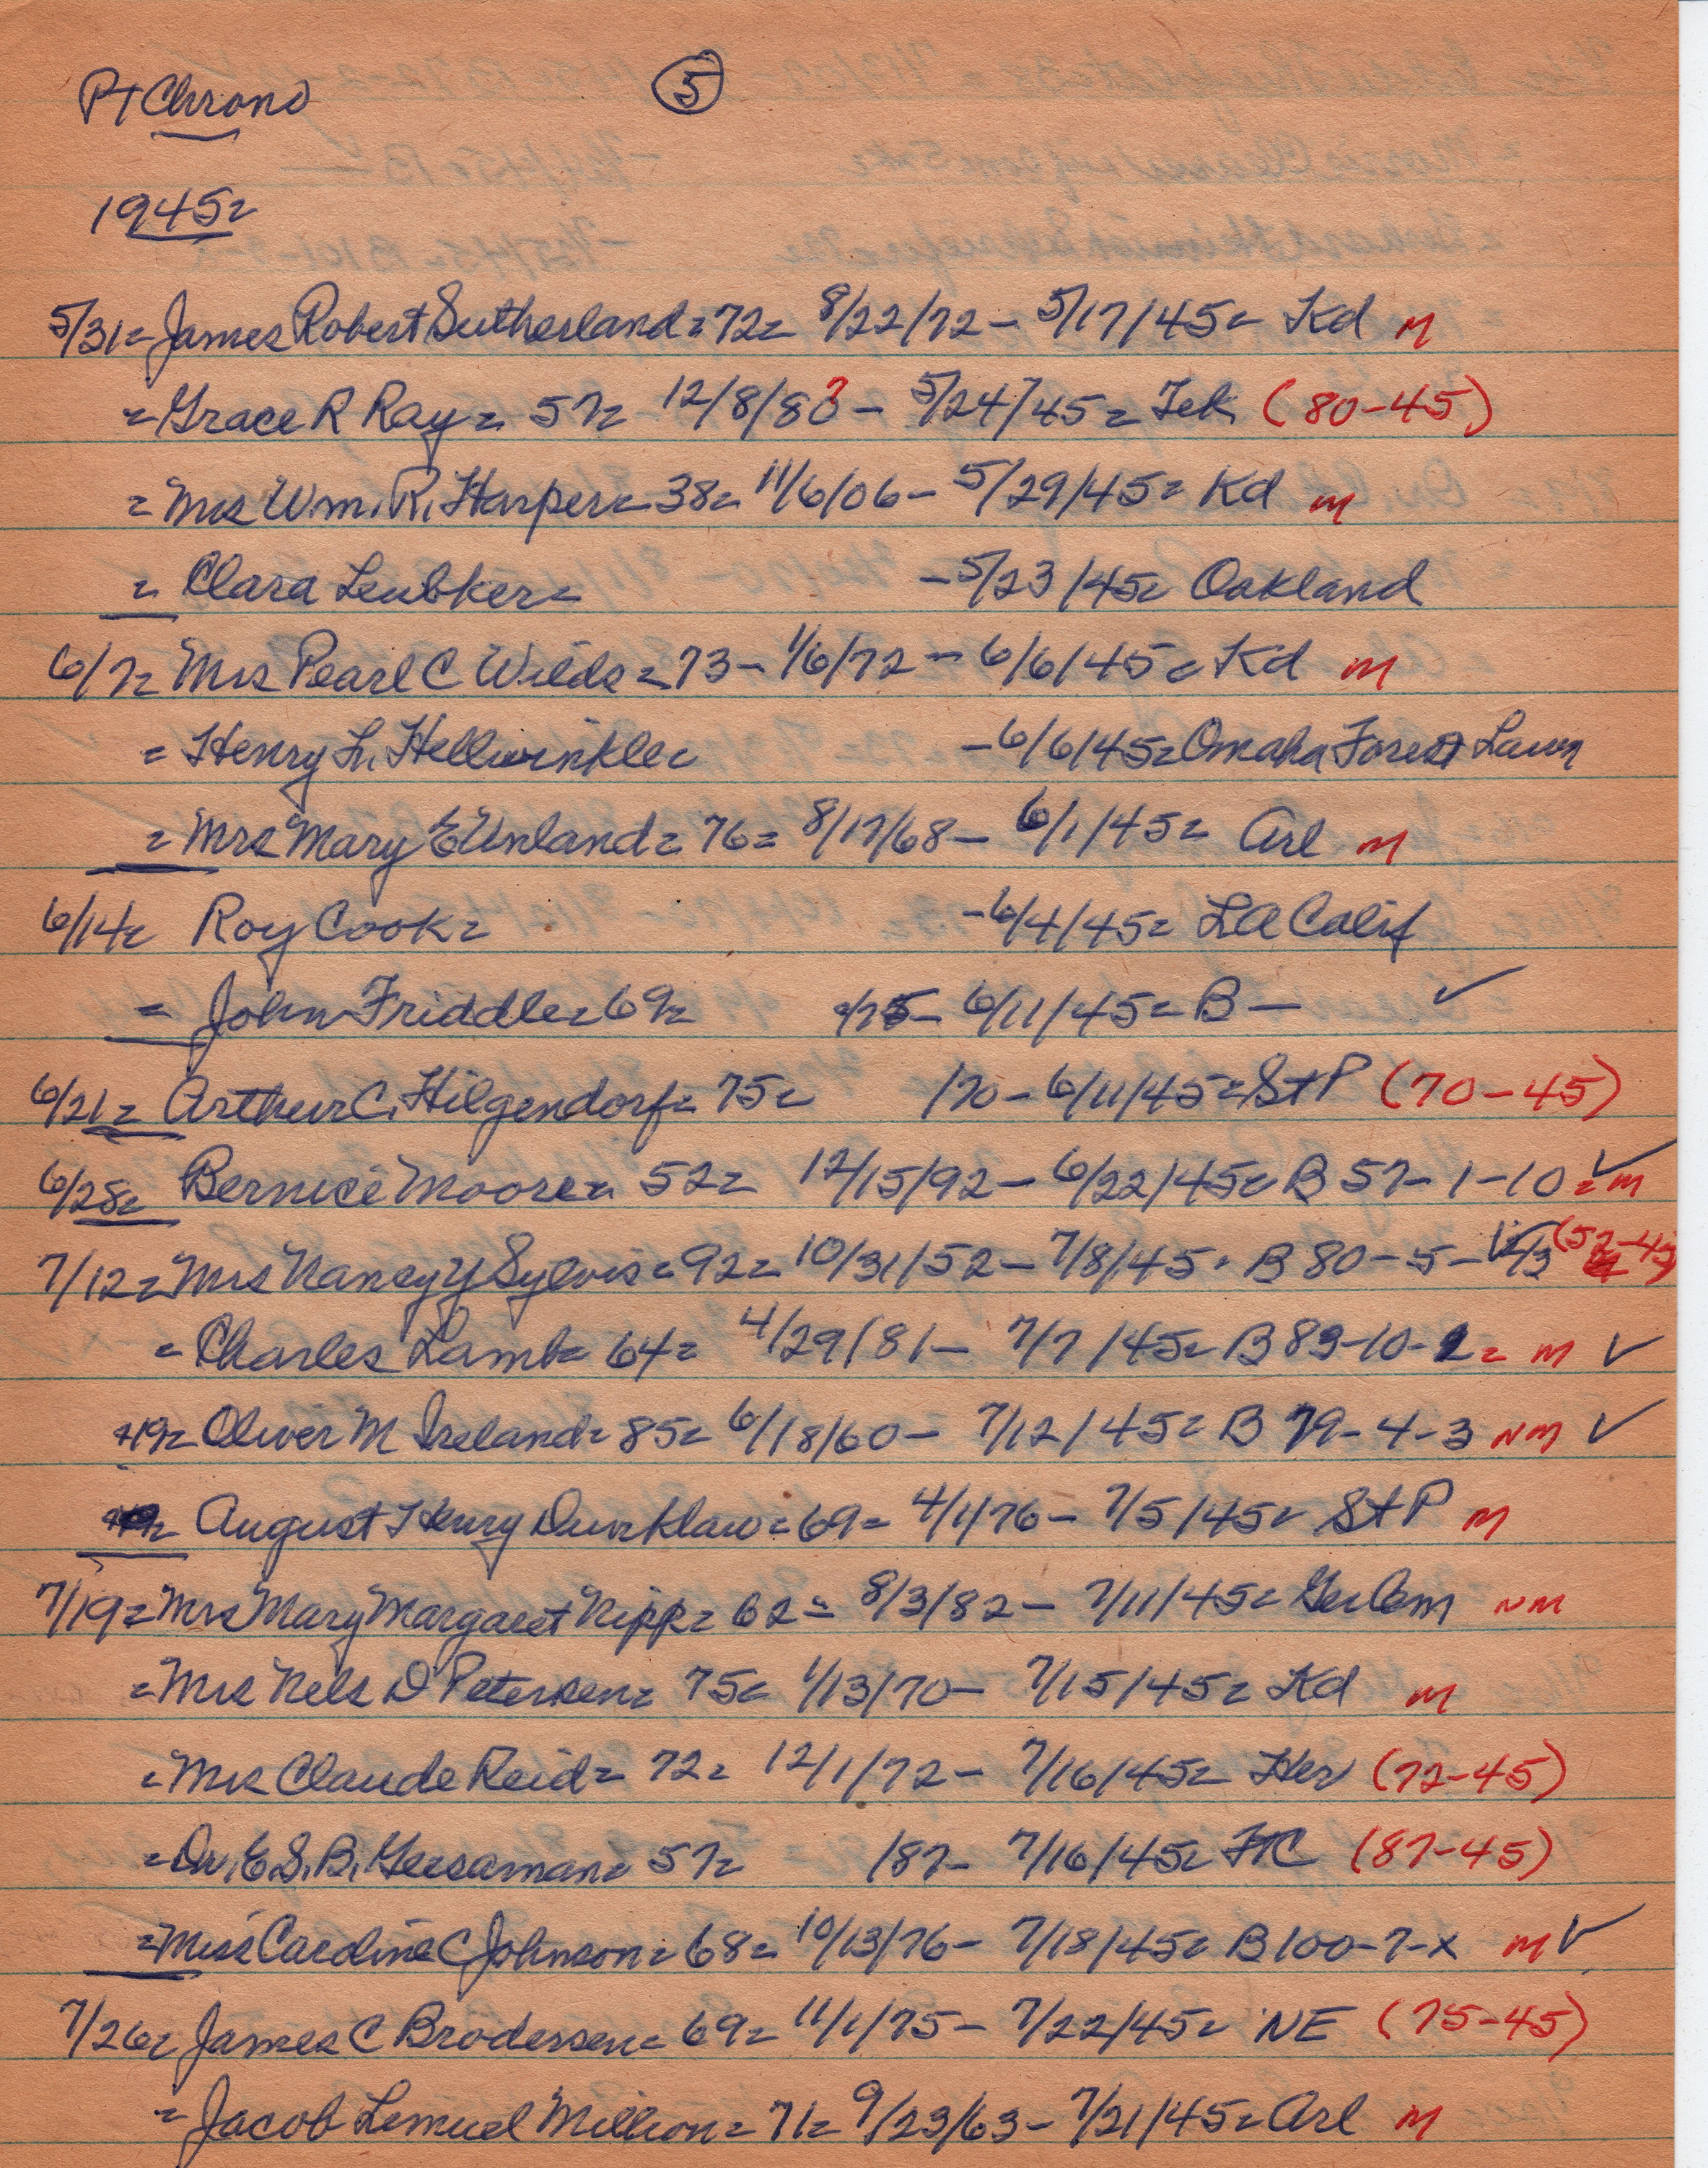 Pt Chrono ⑤
1945=
5/31= James Robert Sutherland= 72= 8/22/72 - 5/17/45= Kd M
= Grace R Ray= 57= 12/8/80? - 5/24/45= Tek (80-45)
= Mrs Wm. R. Harper= 38= 11/6/06 - 5/29/45= Kd M
= Clara Leubker= - 5/23/45= Oakland
6/7= Mrs Pearl C Wilds= 73 - 1/6/72 - 6/6/45= Kd M
= Henry L. Hellwinkle= - 6/6/45= Omaha Forest Lawn
= Mrs Mary E Unland= 76= 8/17/68 - 6/1/45= Arl M
6/14= Roy Cook= - 6/4/45= LA Calif
= John Friddle= 69= /75 - 6/11/45= B - ✓
6/21= Arthur C. Hilgendorf= 75= /70 - 6/11/45= St P (70-45)
6/28= Bernice Moore= 52= 12/15/92 - 6/22/45= B 57-1-10 ✓ = M
7/12= Mrs Nancy Y Sylvis= 92= 10/31/52 - 7/8/45= B 80-5- (52-45)
= Charles Lamb= 64= 4/29/81 - 7/7/45= B 83-10-2= M ✓
= Oliver M Ireland= 85= 6/18/60 - 7/12/45= B 79-4-3 NM ✓
August Henry Durklaw= 69= 4/1/76 - 7/5/45= St P M
7/19= Mrs Mary Margaret Nipp= 62= 8/3/82 - 7/11/45= Ger Cem NM
= Mrs Nels D Petersen= 75= 1/13/70 - 7/15/45= Kd M
= Mrs Claude Reid= 72= 12/1/72 - 7/16/45= Her (72-45)
= Dr. E.S.B. Geesaman= 57= /87 - 7/16/45= FTC (87-45)
= Miss Caroline C Johnson= 68= 10/13/76 - 7/18/45= B 100-7-X M ✓
7/26= James C Brodersen= 69= 11/1/75 - 7/22/45= NE (75-45)
= Jacob Lemuel Million= 71= 9/23/63 - 7/21/45= Arl M